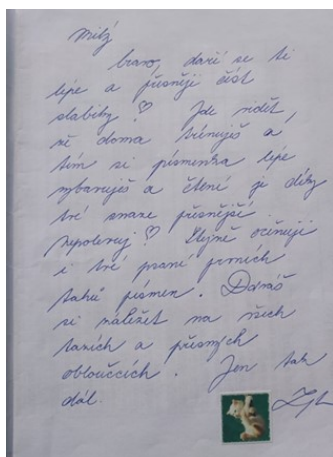 milý
bravo, daří se ti
lépe a přesněji číst
slabiky! Jde vidět,
že doma trénuješ a
tím si písmenka lépe
vybavuješ a čtení je díky
tvé snaze přesnější.
Nepolevuj! Stejně oceňuji
i tvé psaní prvních
tahů písmen. Dáváš
si záležet na všech
tazích a přesných
obloučcích. Jen tak
dál.